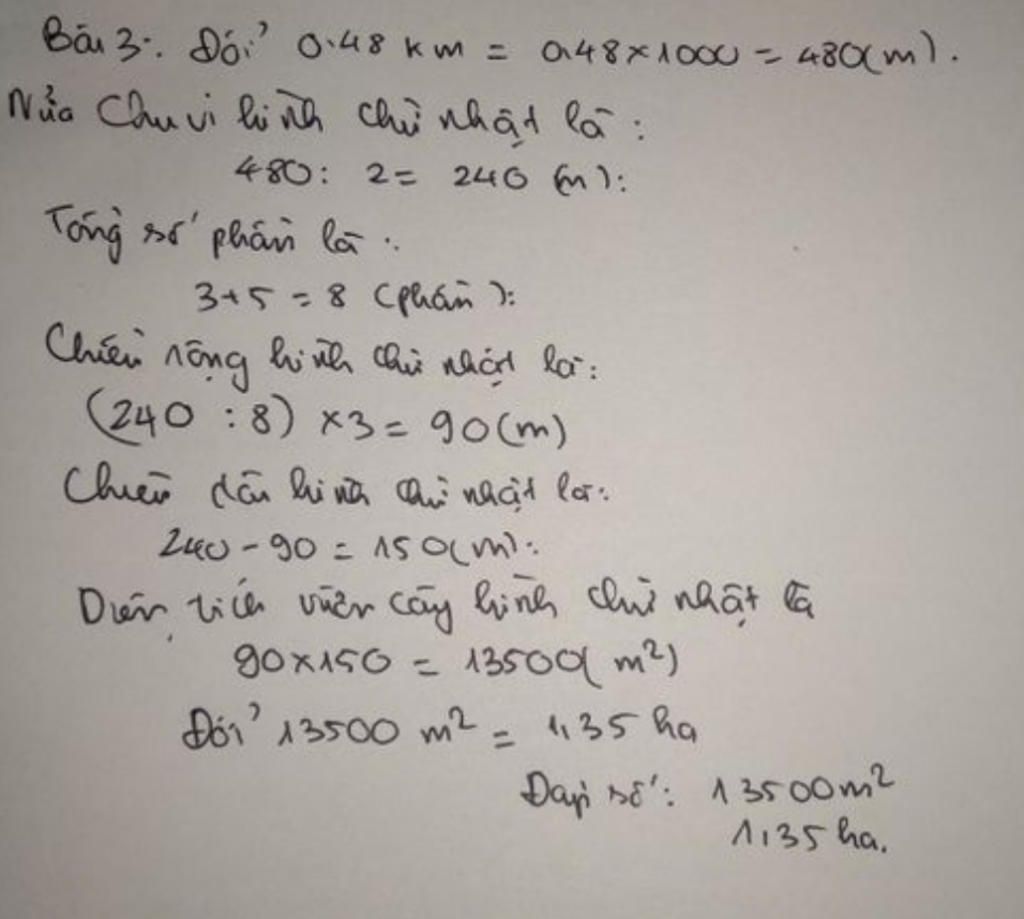 Bài 3: Đổi 0.48 km = 0.48 × 1000 = 480(m).
Nửa chu vi hình chữ nhật là:
480: 2 = 240 (m):
Tổng số phần là:
3 + 5 = 8 (phần):
Chiều rộng hình chữ nhật là:
(240 : 8) × 3 = 90 (m)
Chiều dài hình chữ nhật là:
240 - 90 = 150(m):
Diện tích vườn cây hình chữ nhật là
90 × 150 = 13500( m²)
Đổi 13500 m² = 1,35 ha
Đáp số: 13500 m²
1,35 ha.